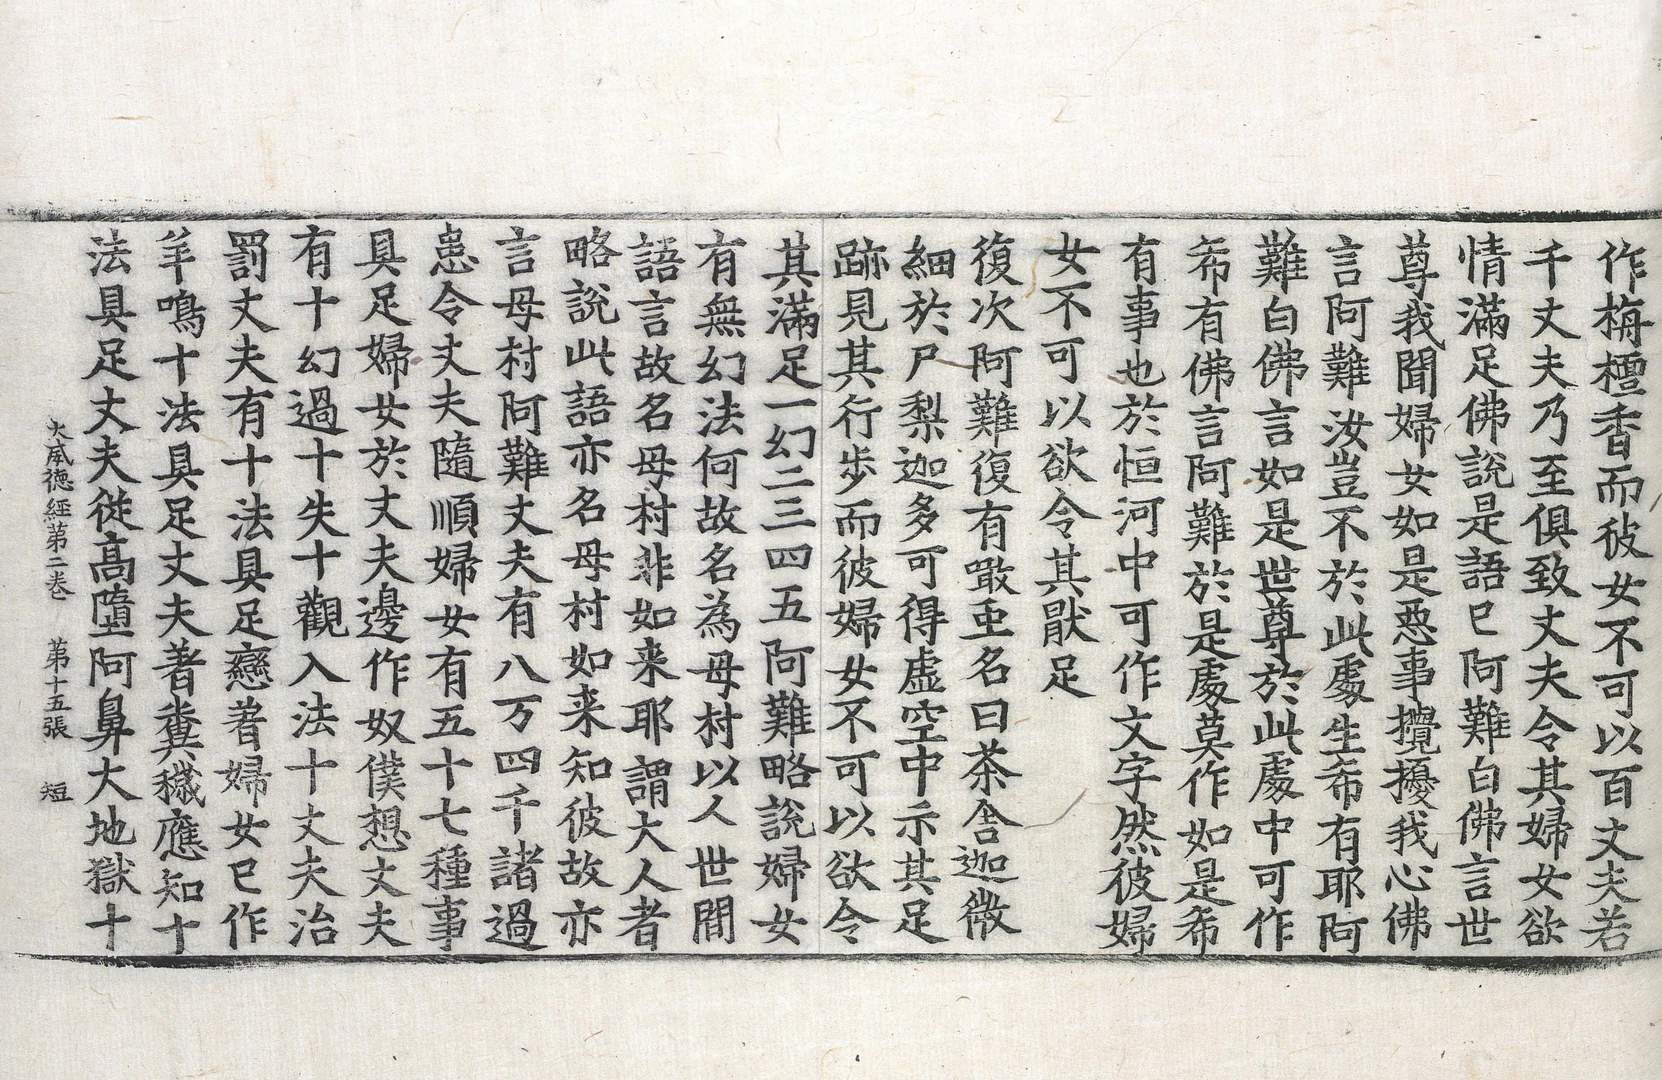 作栴檀香而彼女不可以百丈夫若
千丈夫乃至俱致丈夫令其婦女欲
情滿足佛說是語已阿難白佛言世
尊我聞婦女如是惡事攪擾我心佛
言阿難汝豈不於此處生希有耶阿
難白佛言如是世尊於此處中可作
希有佛言阿難於是處莫作如是希
有事也於恒河中可作文字然彼婦
女不可以欲令其猒足
復次阿難復有噉虫名曰荼舍迦微
細於尸梨迦多可得虛空中示其足
跡見其行步而彼婦女不可以欲令
其滿足一幻二三四五阿難略說婦女
有無幻法何故名為母村以人世間
語言故名母村非如来耶謂大人者
略說此語亦名母村如来知彼故亦
言母村阿難丈夫有八万四千諸過
患令丈夫隨順婦女有五十七種事
具足婦女於丈夫邊作奴僕想丈夫
有十幻過十失十觀入法十丈夫治
罰丈夫有十法具足戀著婦女已作
羊鳴十法具足丈夫著糞穢應知十
法具足丈夫從高墮阿鼻大地獄十
大威德經第二卷 第十五張 短